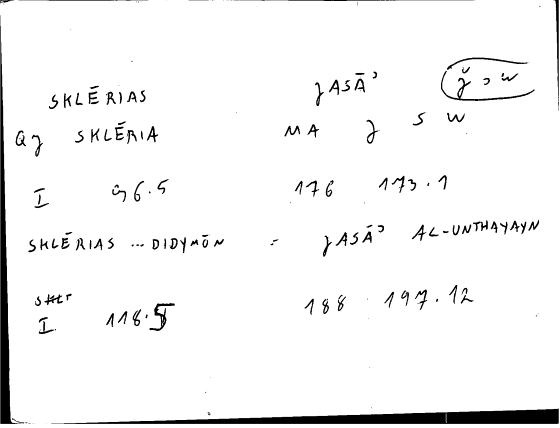 SKLĒRIAS ǰASĀʾ ǰ ʾ w
Qʒ SKLĒRIA MA ǰ S W
I 96.5 176 173.1
SKLĒRIAS ... DIDYMŌN = ǰASĀʾ AL-UNTHAYAYN
I 118.5 188 197.12